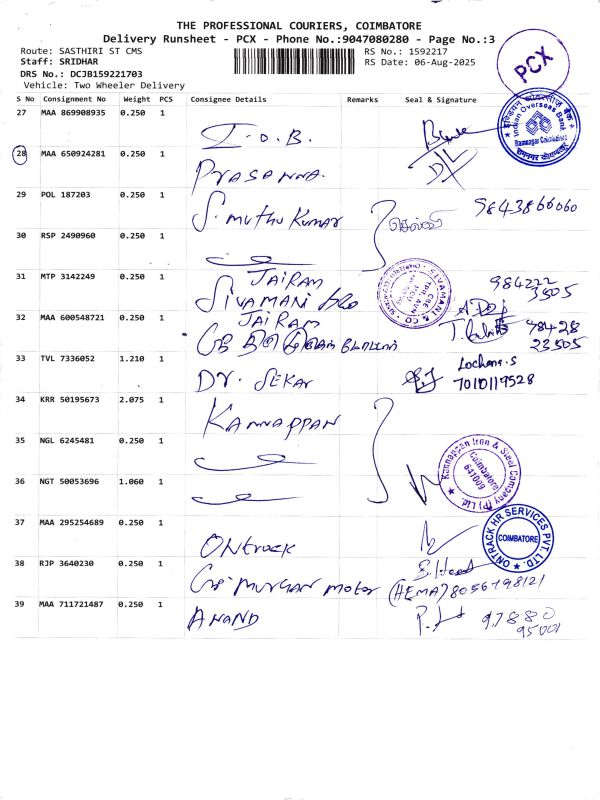 THE PROFESSIONAL COURIERS, COIMBATORE
Delivery Runsheet - PCX - Phone No.:9047080280 - Page No.:3
Route: SASTHIRI ST CMS RS No.: 1592217
Staff: SRIDHAR RS Date: 06-Aug-2025
DRS No.: DCJB159221703
Vehicle: Two Wheeler Delivery
PCX
S No Consignment No Weight PCS Consignee Details Remarks Seal & Signature
27 MAA 869908935 0.250 1 I.O.B.
Indian Overseas Bank
28 MAA 650924281 0.250 1 PRASANNA.
29 POL 187203 0.250 1 S. muthu Kumar செல்வி 9843866060
30 RSP 2490960 0.250 1
31 MTP 3142249 0.250 1 JAIRAM
SIVAMANI &co 984222
3505
SIVAMANI & CO
32 MAA 600548721 0.250 1 JAIRAM
98428
23505
33 TVL 7336052 1.210 1 DR. SEKAR Lochana.S
7010119528
34 KRR 50195673 2.075 1 KANNAPPAN
35 NGL 6245481 0.250 1
Kannappan Iron & Steel Company (P) Ltd.
Coimbatore
641009
36 NGT 50053696 1.060 1
37 MAA 295254689 0.250 1 ONtrack
ONTRACK HR SERVICES PVT. LTD.
COIMBATORE
38 RJP 3640230 0.250 1 MURUGAN motor (HEMA) 8056798121
39 MAA 711721487 0.250 1 ANAND 97880
95001